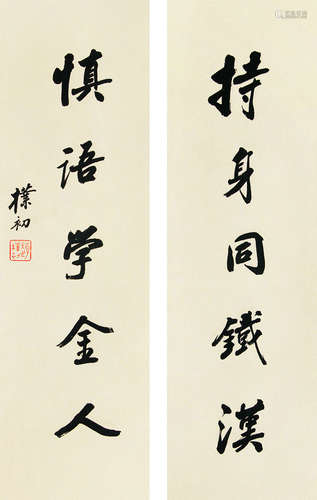 持身同鐵漢
慎语学金人
樸初